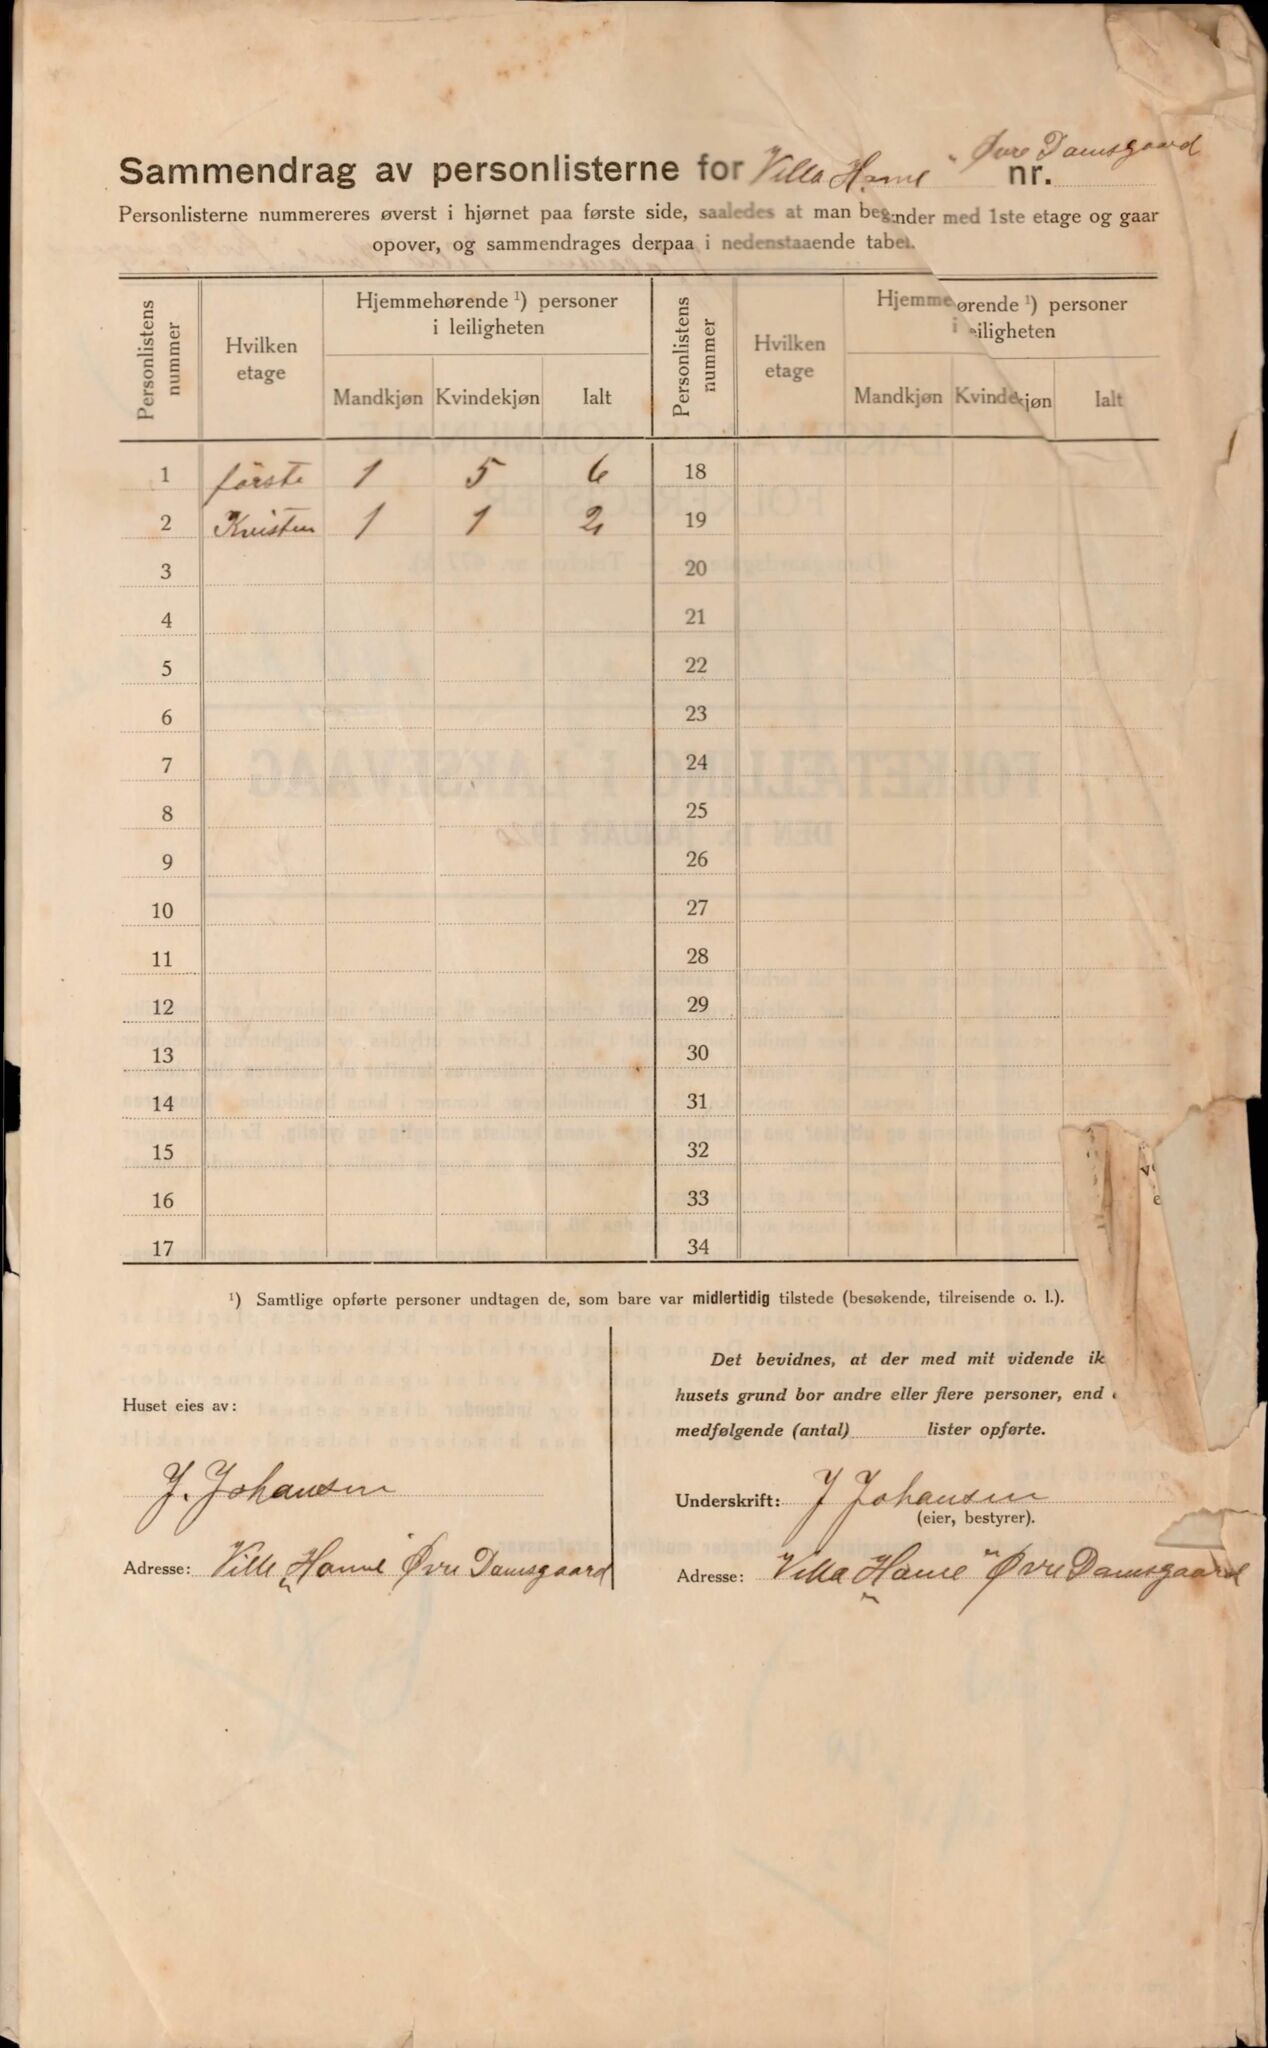 Sammendrag av personlisterne for Villa Hanne " Øvre Damsgaard nr.
Personlisterne nummereres øverst i hjørnet paa første side, saaledes at man begynder med 1ste etage og gaar
opover, og sammendrages derpaa i nedenstaaende tabel.
Personlistens nummer
Hvilken etage
Hjemmehørende ¹) personer i leiligheten
Mandkjøn Kvindekjøn Ialt
Personlistens nummer
Hvilken etage
Hjemmehørende ¹) personer i leiligheten
Mandkjøn Kvindekjøn Ialt
1 første 1 5 6 18
2 Kvisten 1 1 2 19
3 20
4 21
5 22
6 23
7 24
8 25
9 26
10 27
11 28
12 29
13 30
14 31
15 32
16 33
17 34
¹) Samtlige opførte personer undtagen de, som bare var midlertidig tilstede (besøkende, tilreisende o. l.).
Huset eies av:
J. Johansen
Adresse: Villa "Hanne" Øvre Damsgaard
Det bevidnes, at der med mit vidende ik
husets grund bor andre eller flere personer, end
medfølgende (antal) lister opførte.
Underskrift: J Johansen
(eier, bestyrer).
Adresse: Villa "Hanne" Øvre Damsgaard